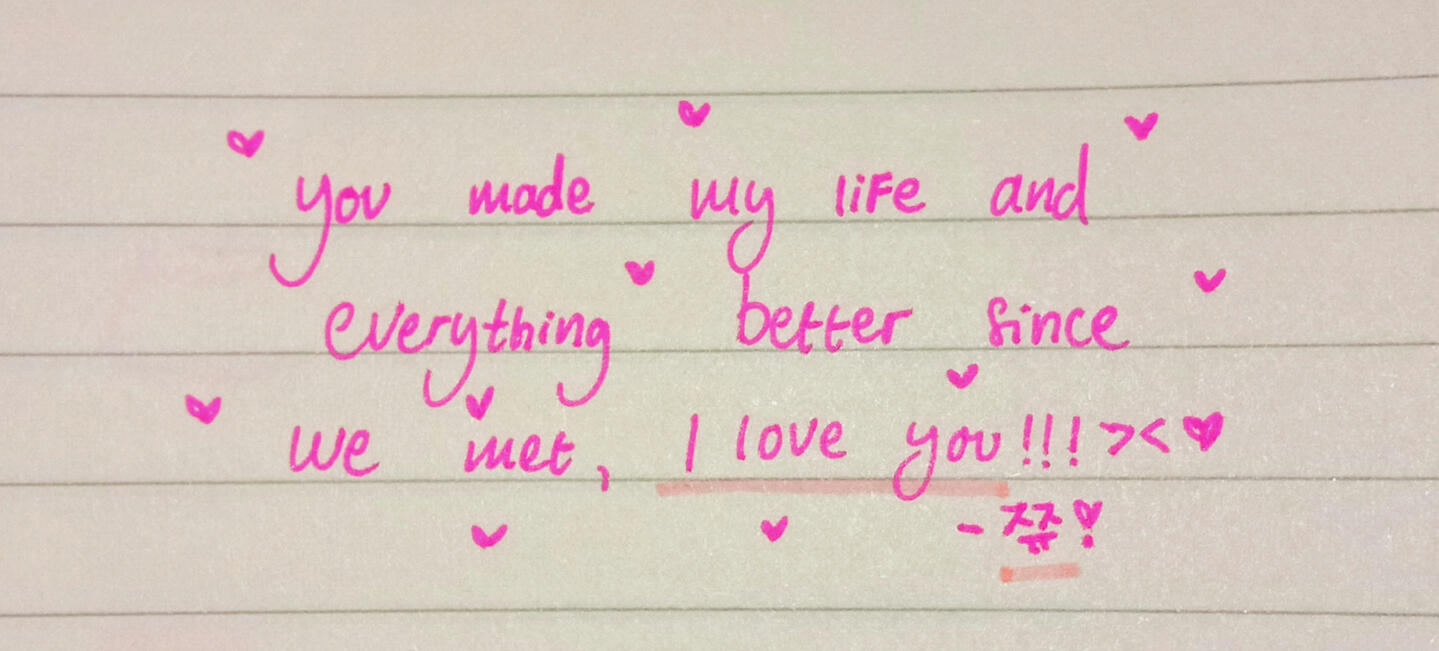 you made my life and
everything better since
we met, I love you!!! >< ♥
-쮸!